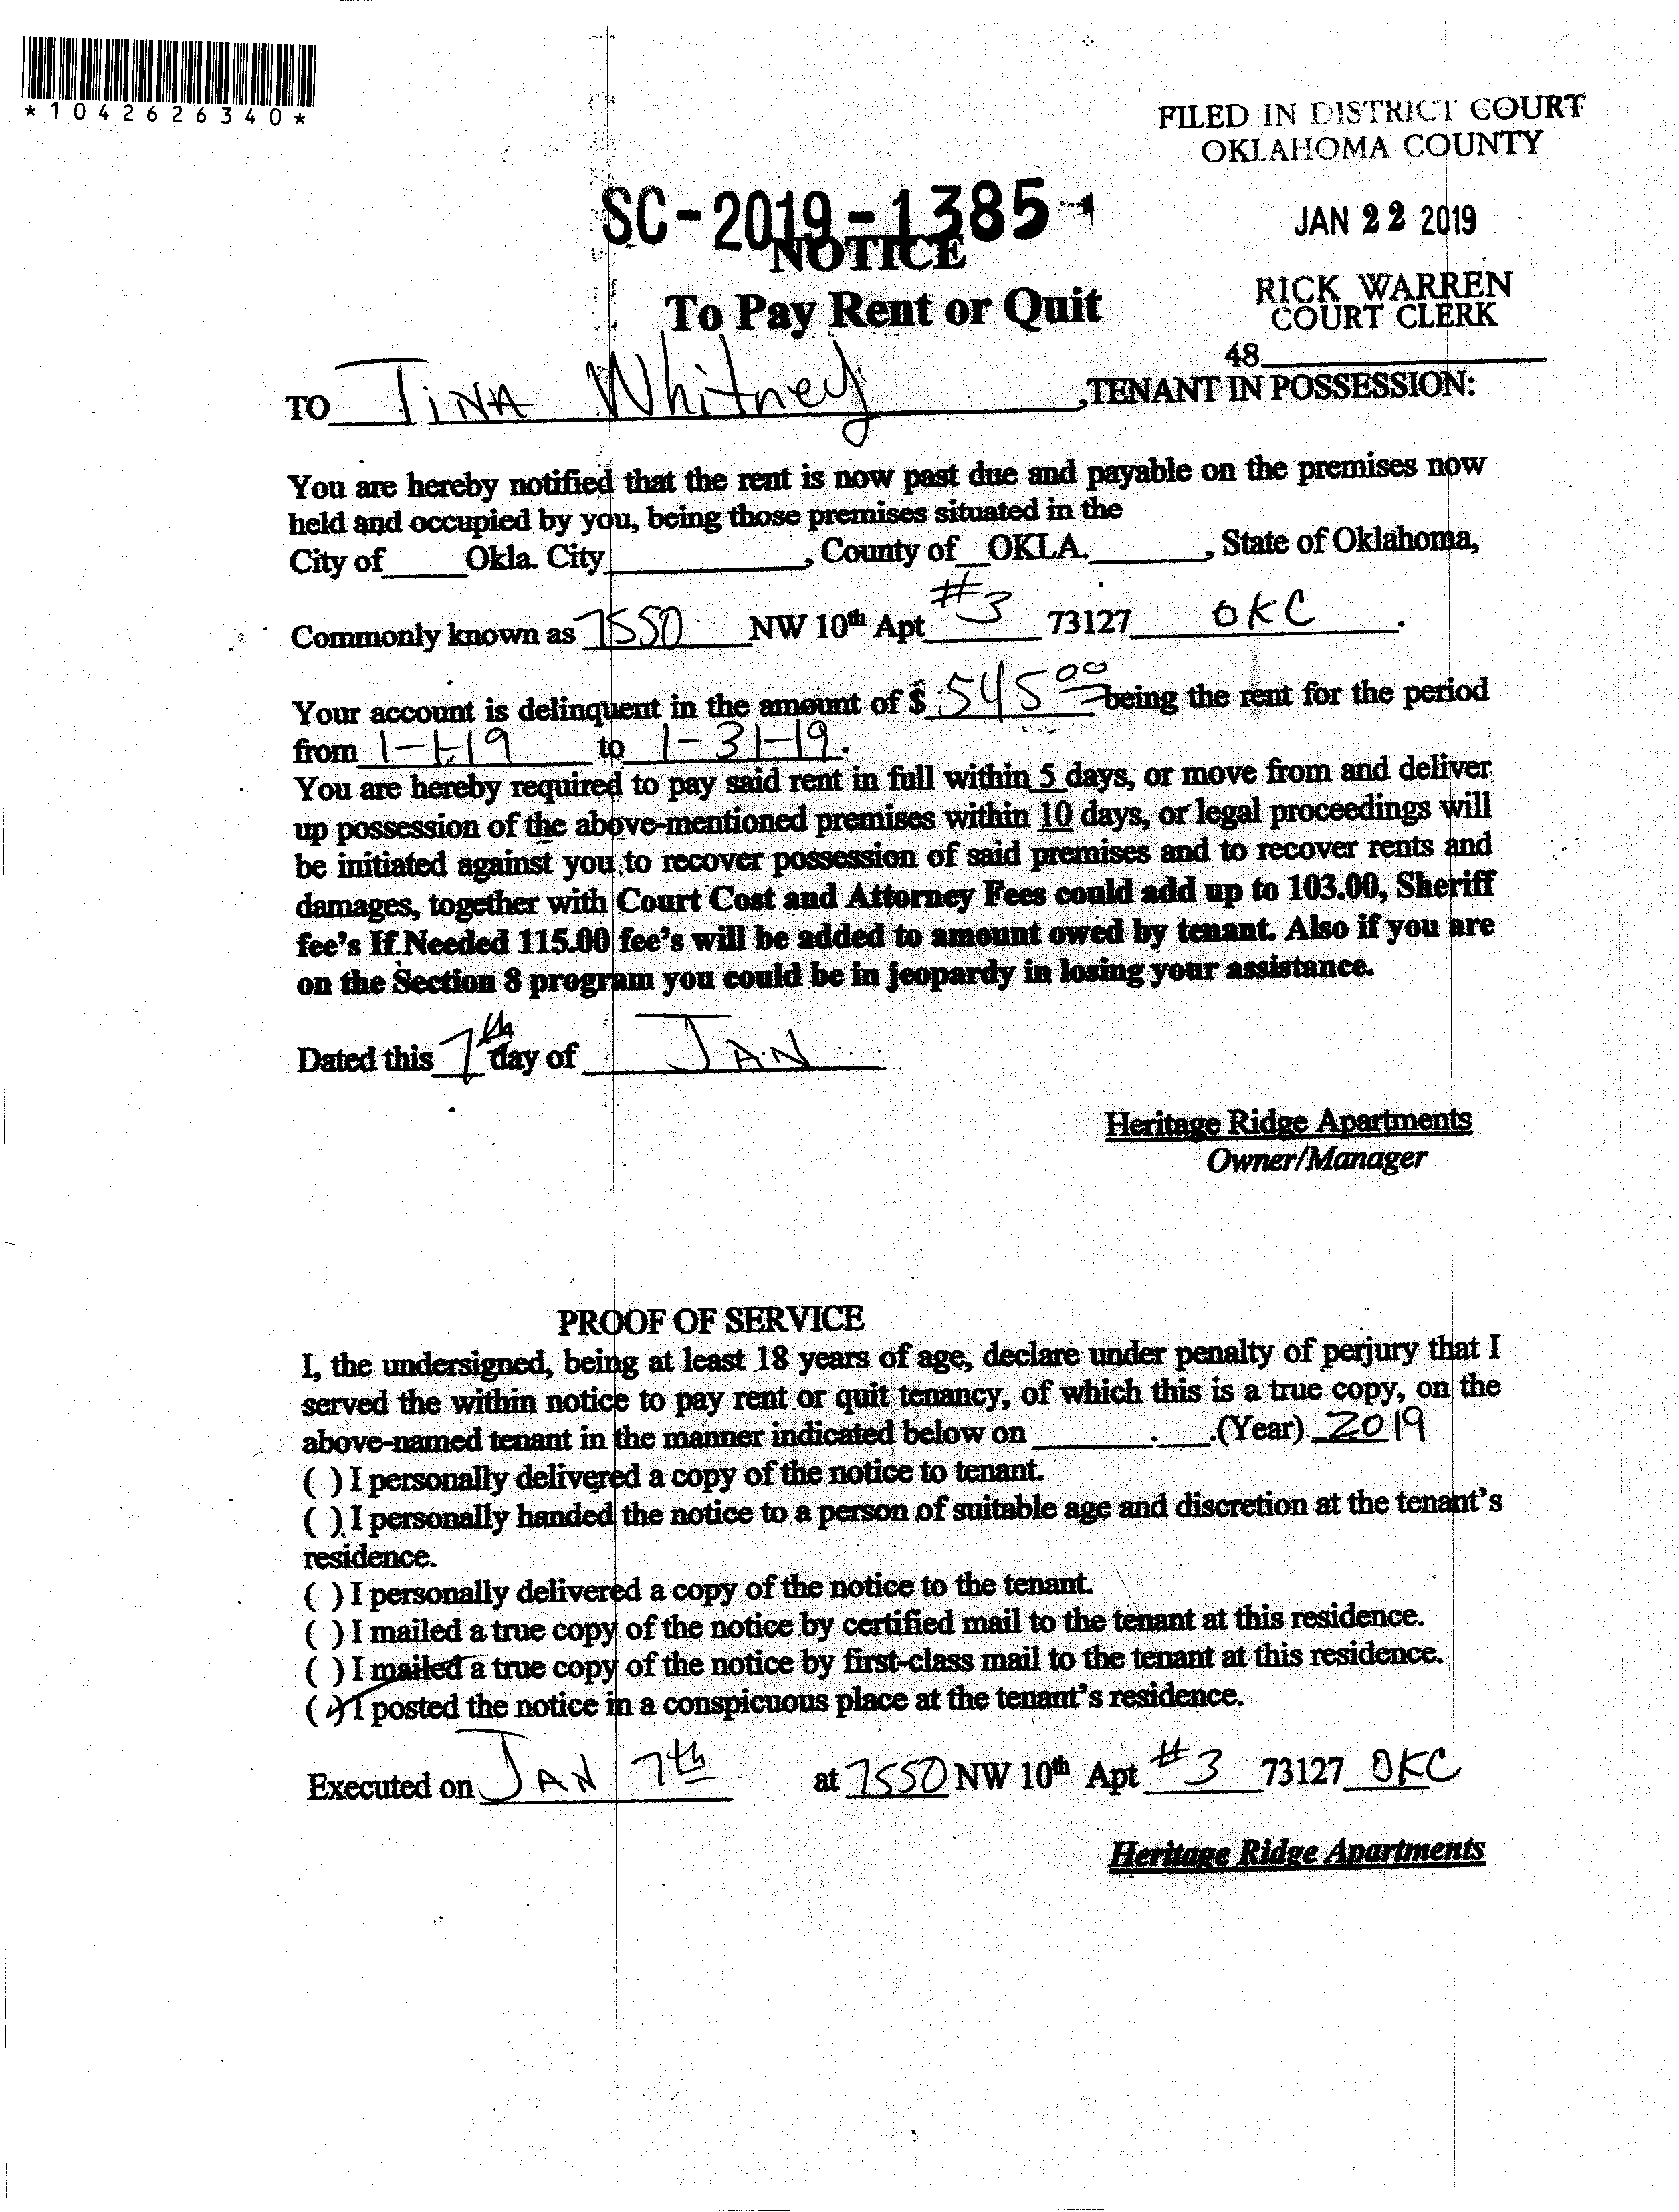 *1042626340*
FILED IN DISTRICT COURT
OKLAHOMA COUNTY
SC-2019-1385
JAN 22 2019
NOTICE
RICK WARREN
COURT CLERK
To Pay Rent or Quit
48
TO TINA Whitney, TENANT IN POSSESSION:
You are hereby notified that the rent is now past due and payable on the premises now
held and occupied by you, being those premises situated in the
City of Okla. City, County of OKLA., State of Oklahoma,
Commonly known as 7550 NW 10th Apt #3 73127 OKC.
Your account is delinquent in the amount of $ 545 00 being the rent for the period
from 1-1-19 to 1-31-19.
You are hereby required to pay said rent in full within 5 days, or move from and deliver
up possession of the above-mentioned premises within 10 days, or legal proceedings will
be initiated against you to recover possession of said premises and to recover rents and
damages, together with Court Cost and Attorney Fees could add up to 103.00, Sheriff
fee's If Needed 115.00 fee's will be added to amount owed by tenant. Also if you are
on the Section 8 program you could be in jeopardy in losing your assistance.
Dated this 7th day of JAN
Heritage Ridge Apartments
Owner/Manager
PROOF OF SERVICE
I, the undersigned, being at least 18 years of age, declare under penalty of perjury that I
served the within notice to pay rent or quit tenancy, of which this is a true copy, on the
above-named tenant in the manner indicated below on ______.___.(Year) 2019
( ) I personally delivered a copy of the notice to tenant.
( ) I personally handed the notice to a person of suitable age and discretion at the tenant's
residence.
( ) I personally delivered a copy of the notice to the tenant.
( ) I mailed a true copy of the notice by certified mail to the tenant at this residence.
( ) I mailed a true copy of the notice by first-class mail to the tenant at this residence.
(✓) I posted the notice in a conspicuous place at the tenant's residence.
Executed on JAN 7th at 7550 NW 10th Apt #3 73127 OKC
Heritage Ridge Apartments